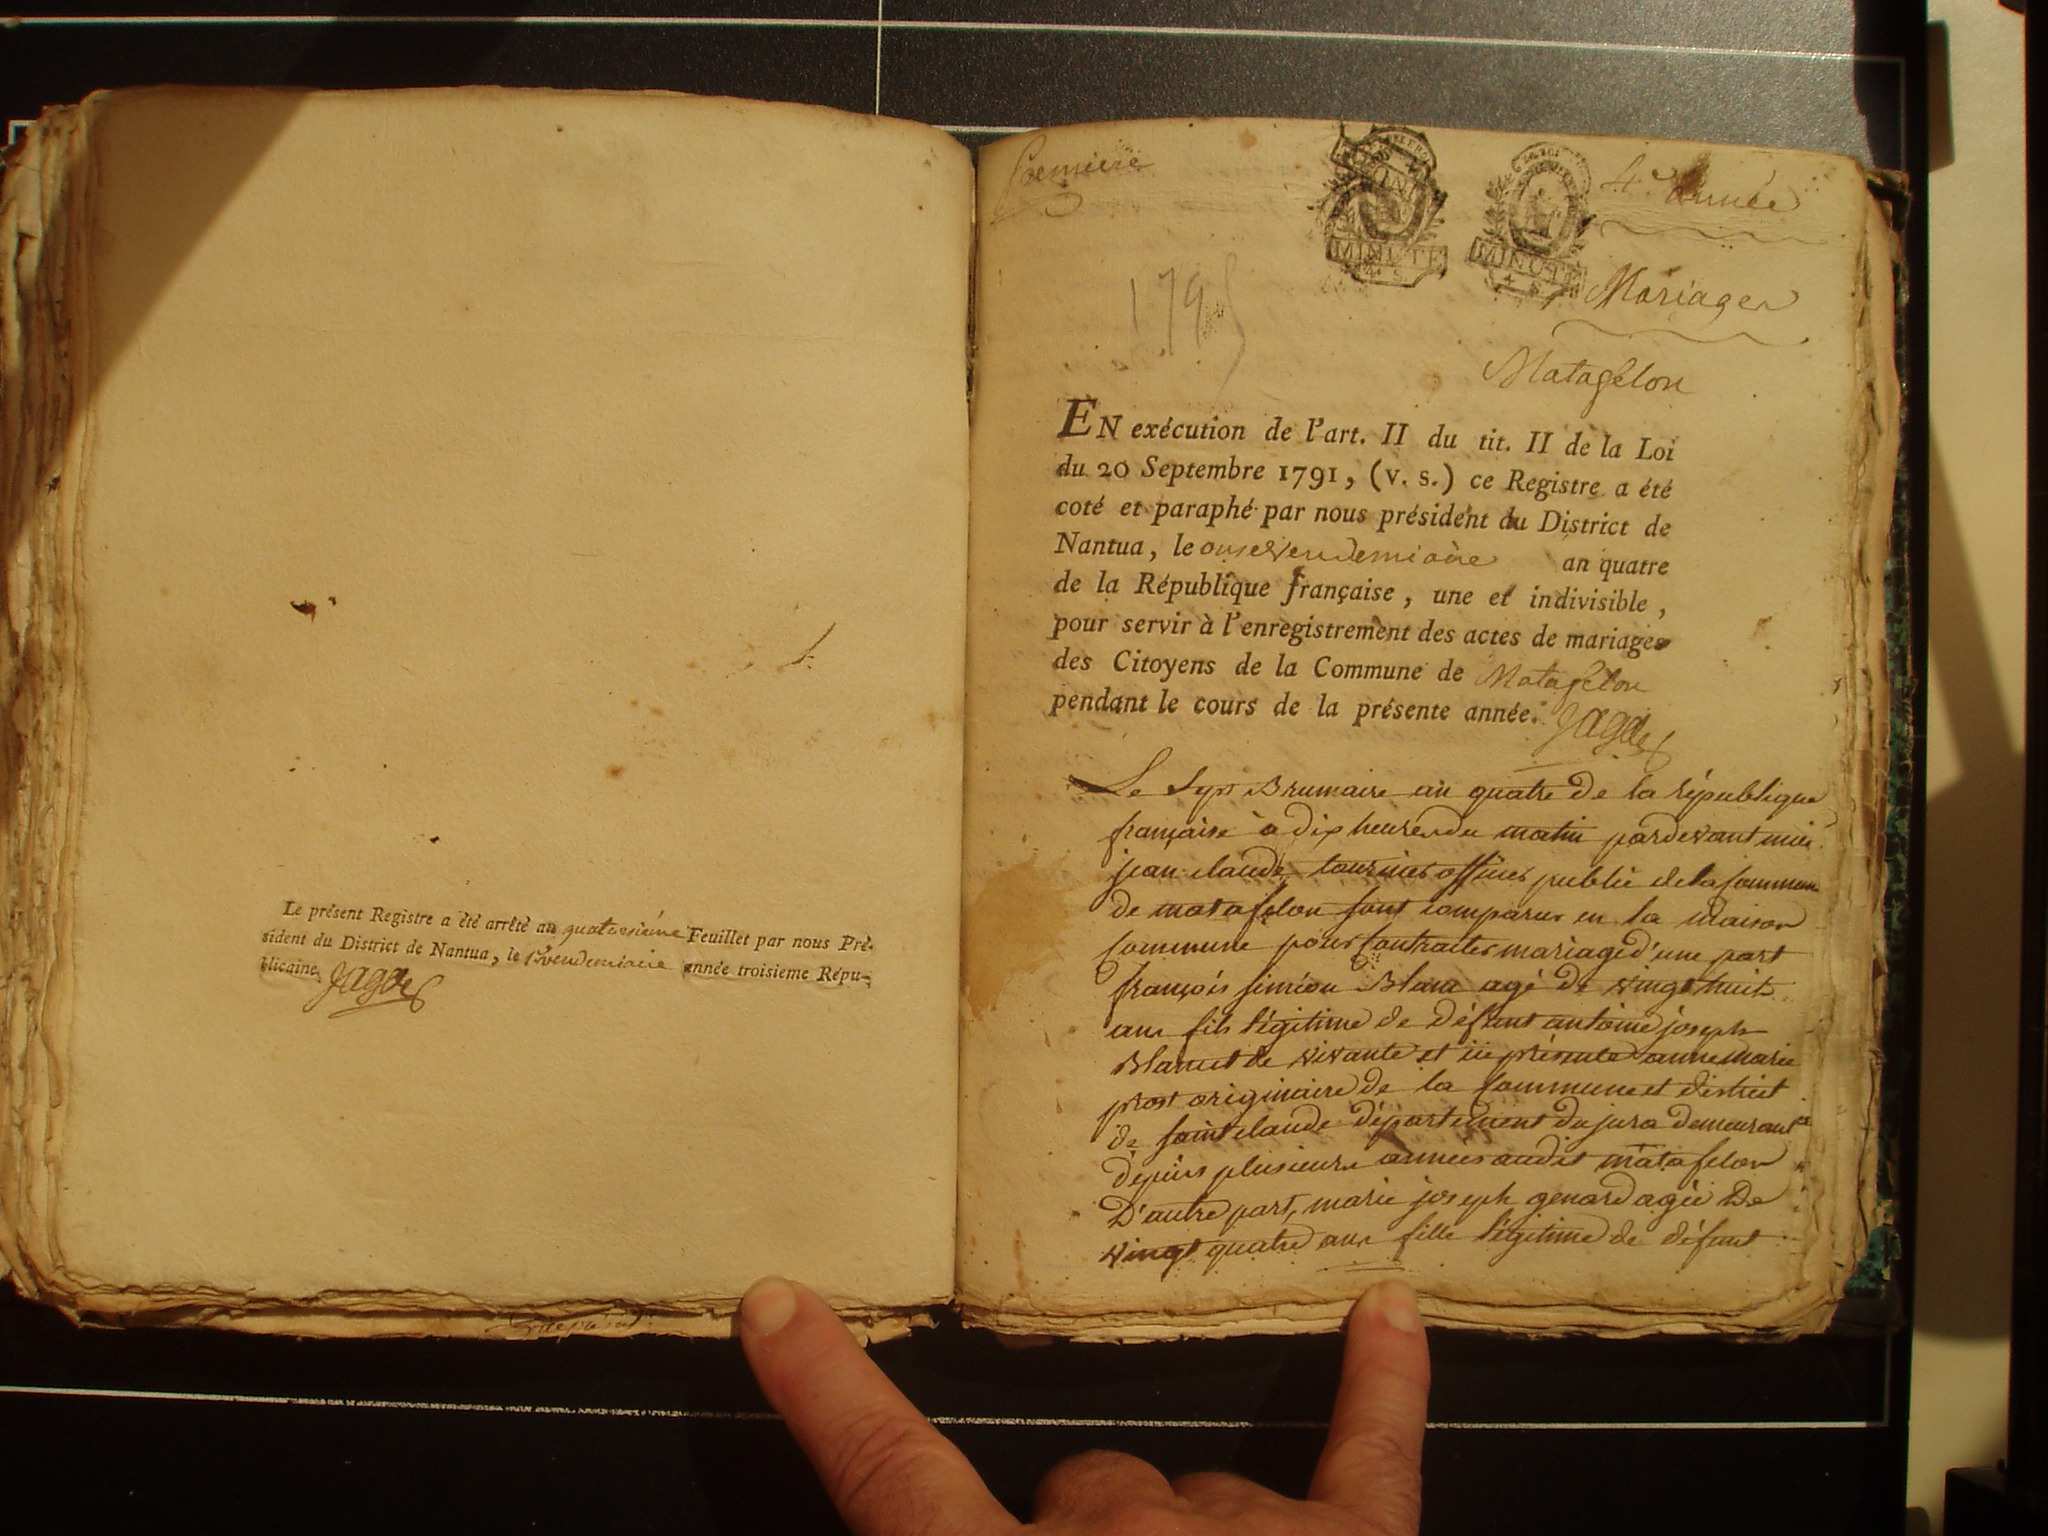 Le présent Registre a été arrêté au quatorsième Feuillet par nous Pré-
sident du District de Nantua, le vendemiaire année troisieme Répu-
blicaine. Jagot
Premiere
4e année
MINUTE
4 S
MINUTE
4 S
1795
Mariages
Matafelon
EN exécution de l'art. II du tit. II de la Loi
du 20 Septembre 1791, (v. s.) ce Registre a été
coté et paraphé par nous président du District de
Nantua, le onse vendemiaire an quatre
de la République française, une et indivisible,
pour servir à l'enregistrement des actes de mariages
des Citoyens de la Commune de Matafelon
pendant le cours de la présente année. Jagot
Le sept Brumaire an quatre de la république
française à dix heures du matin pardevant moi
jean claude tournier officier public de la commune
de matafelon sont comparus en la maison
commune pour contracter mariage d'une part
françois siméon Blanc agé de vingt huit
ans fils légitime de défunt antoine joseph
Blanc et de vivante et ici présente anne marie
prost originaire de la commune et district
de saint claude département du jura demeurant
depuis plusieurs années audit matafelon
D'autre part, marie joseph genard agée De
vingt quatre ans fille légitime de défunt